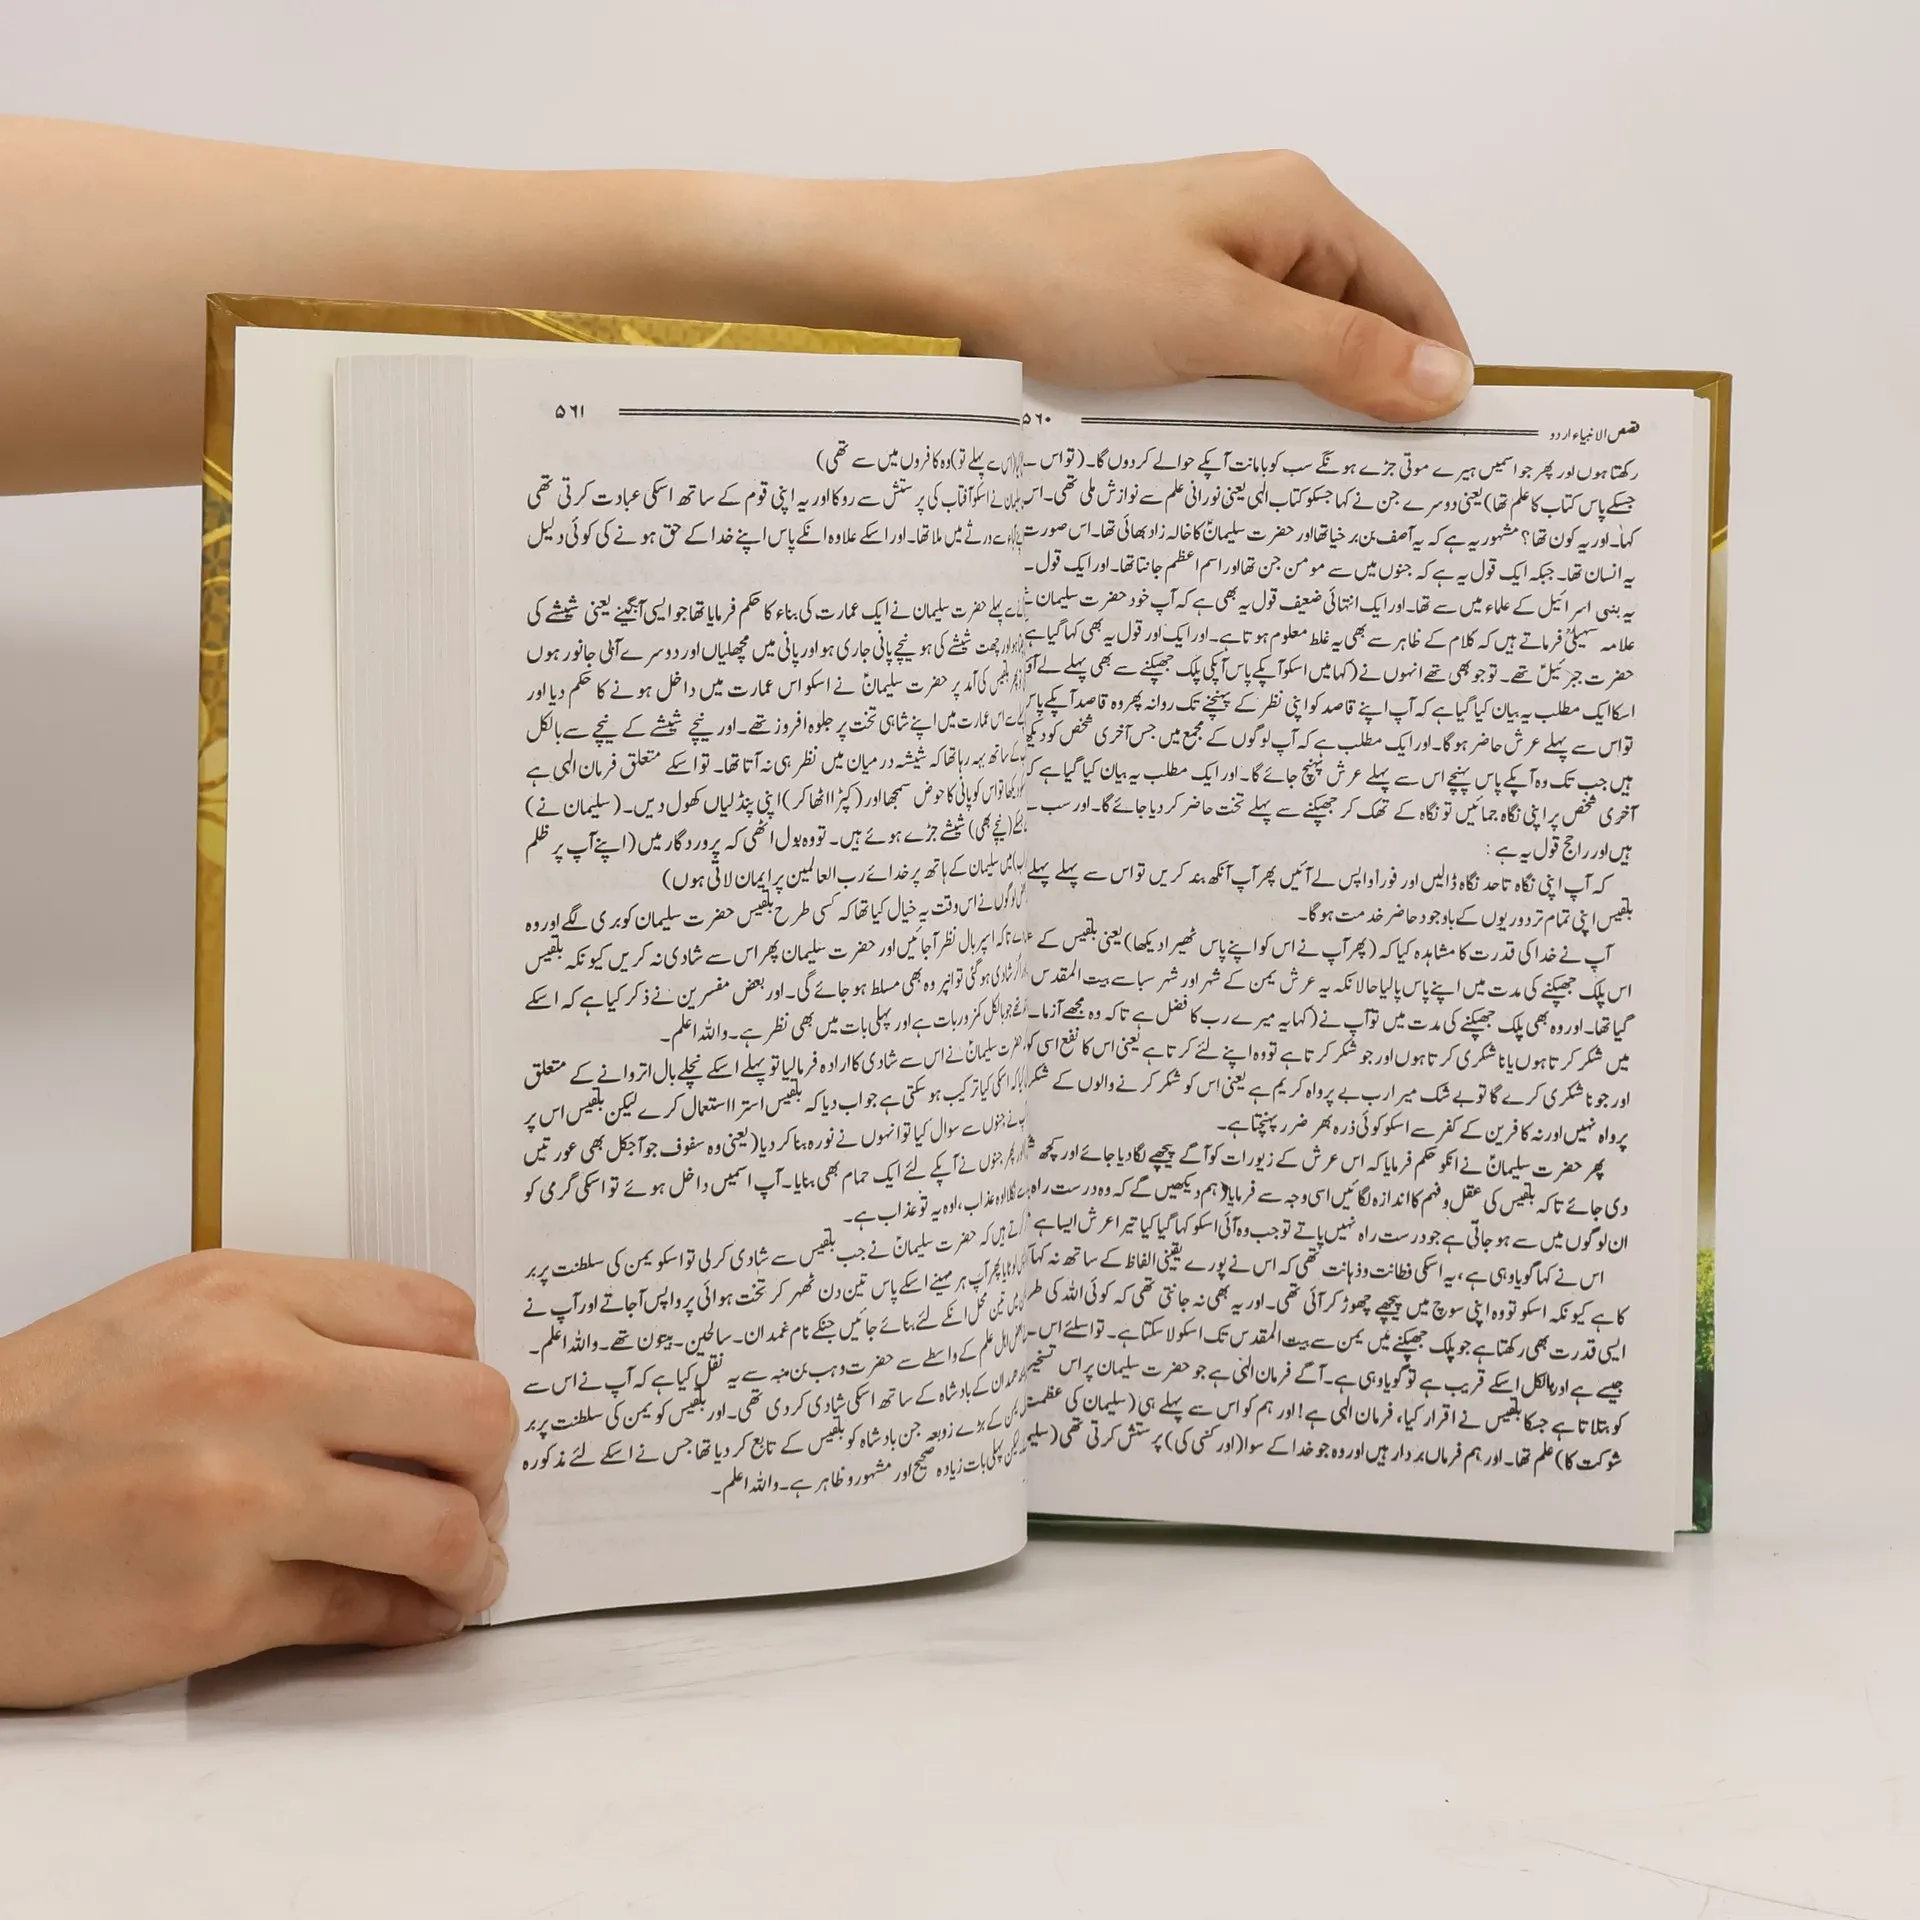 قصص الانبیاء اردو ۵۶۰
رکھتا ہوں اور پھر جو اسمیں ہیرے موتی جڑے ہونگے سب کو بامانت آپکے حوالے کردوں گا۔ (تو اس
جسکے پاس کتاب کا علم تھا) یعنی دوسرے جن نے کہا جسکو کتاب الٰہی یعنی نورانی علم سے نوازش ملی تھی۔ اس
کہا۔ اور یہ کون تھا؟ مشہور یہ ہے کہ یہ آصف بن برخیا تھا اور حضرت سلیمانؑ کا خالہ زاد بھائی تھا۔ اس صورت
یہ انسان تھا۔ جبکہ ایک قول یہ ہے کہ جنوں میں سے مومن جن تھا اور اسم اعظم جانتا تھا۔ اور ایک قول
یہ بنی اسرائیل کے علماء میں سے تھا۔ اور ایک انتہائی ضعیف قول یہ بھی ہے کہ آپ خود حضرت سلیمان
علامہ سہیلیؒ فرماتے ہیں کہ کلام کے ظاہر سے بھی یہ غلط معلوم ہوتا ہے۔ اور ایک اور قول یہ بھی کہا گیا ہے
حضرت جبرئیلؑ تھے۔ تو جو بھی تھے انہوں نے (کہا میں اسکو آپکے پاس آپکی پلک جھپکنے سے بھی پہلے لے
اسکا ایک مطلب یہ بیان کیا گیا ہے کہ آپ اپنے قاصد کو اپنی نظر کے پہنچنے تک روانہ پھر وہ قاصد آپکے پاس
تو اس سے پہلے عرش حاضر ہوگا۔ اور ایک مطلب ہے کہ آپ لوگوں کے مجمع میں جس آخری شخص کو دیکھ
ہیں جب تک وہ آپکے پاس پہنچے اس سے پہلے عرش پہنچ جائے گا۔ اور ایک مطلب یہ بیان کیا گیا ہے کہ
آخری شخص پر اپنی نگاہ جمائیں تو نگاہ کے تھک کر جھپکنے سے پہلے تخت حاضر کردیا جائے گا۔ اور سب
ہیں اور راجح قول یہ ہے :
کہ آپ اپنی نگاہ تاحد نگاہ ڈالیں اور فوراً واپس لے آئیں پھر آپ آنکھ بند کریں تو اس سے پہلے پہلے
بلقیس اپنی تمام تر دوریوں کے باوجود حاضر خدمت ہوگا۔
آپ نے خدا کی قدرت کا مشاہدہ کیا کہ (پھر آپ نے اس کو اپنے پاس ٹھیرا دیکھا) یعنی بلقیس کے
اس پلک جھپکنے کی مدت میں اپنے پاس پالیا حالانکہ یہ عرش یمن کے شہر اور شہر سبا سے بیت المقدس
گیا تھا۔ اور وہ بھی پلک جھپکنے کی مدت میں تو آپ نے (کہا یہ میرے رب کا فضل ہے تاکہ وہ مجھے آزما
میں شکر کرتا ہوں یا ناشکری کرتا ہوں اور جو شکر کرتا ہے تو وہ اپنے لئے کرتا ہے یعنی اس کا نفع اسی کو
اور جو ناشکری کرے گا تو بے شک میرا رب بے پرواہ کریم ہے یعنی اس کو شکر کرنے والوں کے شکر
پرواہ نہیں اور نہ کافرین کے کفر سے اسکو کوئی ذرہ بھر ضرر پہنچتا ہے۔
پھر حضرت سلیمانؑ نے انکو حکم فرمایا کہ اس عرش کے زیورات کو آگے پیچھے لگادیا جائے اور کچھ
دی جائے تاکہ بلقیس کی عقل و فہم کا اندازہ لگائیں اسی وجہ سے فرمایا (ہم دیکھیں گے کہ وہ درست راہ
ان لوگوں میں سے ہو جاتی ہے جو درست راہ نہیں پاتے تو جب وہ آئی اسکو کہا گیا کیا تیرا عرش ایسا ہے
اس نے کہا گویا وہی ہے، یہ اسکی فطانت و ذہانت تھی کہ اس نے پورے یقینی الفاظ کے ساتھ نہ کہا
کا ہے کیونکہ اسکو تو وہ اپنی سوچ میں پیچھے چھوڑ کر آئی تھی۔ اور یہ بھی نہ جانتی تھی کہ کوئی اللہ کی
ایسی قدرت بھی رکھتا ہے جو پلک جھپکنے میں یمن سے بیت المقدس تک اسکو لا سکتا ہے۔ تو اسلئے اس
جیسے ہے اور بالکل اسکے قریب ہے تو گویا وہی ہے۔ آگے فرمان الٰہی ہے جو حضرت سلیمان پر اس تسخیر
کو بتلاتا ہے جسکا بلقیس نے اقرار کیا، فرمان الٰہی ہے! اور ہم کو اس سے پہلے ہی (سلیمان کی عظمت
شوکت کا) علم تھا۔ اور ہم فرماں بردار ہیں اور وہ جو خدا کے سوا (اور کسی کی) پرستش کرتی تھی (سلیم
۵۶۱
(اس سے پہلے تو) وہ کافروں میں سے تھی)
نے اسکو آفتاب کی پرستش سے روکا اور یہ اپنی قوم کے ساتھ اسکی عبادت کرتی تھی
سے ورثے میں ملا تھا۔ اور اسکے علاوہ انکے پاس اپنے خدا کے حق ہونے کی کوئی دلیل
پہلے حضرت سلیمان نے ایک عمارت کی بناء کا حکم فرمایا تھا جو ایسی آبگینے یعنی شیشے کی
اور چھت شیشے کی ہو نیچے پانی جاری ہو اور پانی میں مچھلیاں اور دوسرے آبی جانور ہوں
بلقیس کی آمد پر حضرت سلیمانؑ نے اسکو اس عمارت میں داخل ہونے کا حکم دیا اور
اس عمارت میں اپنے شاہی تخت پر جلوہ افروز تھے۔ اور نیچے شیشے کے نیچے سے بالکل
کے ساتھ بہہ رہا تھا کہ شیشہ درمیان میں نظر ہی نہ آتا تھا۔ تو اسکے متعلق فرمان الٰہی ہے
دیکھا تو اس کو پانی کا حوض سمجھا اور (کپڑا اٹھا کر) اپنی پنڈلیاں کھول دیں۔ (سلیمان نے)
(نیچے بھی) شیشے جڑے ہوئے ہیں۔ تو وہ بول اٹھی کہ پروردگار میں (اپنے آپ پر ظلم
میں سلیمان کے ہاتھ پر خدائے رب العالمین پر ایمان لاتی ہوں)
لوگوں نے اس وقت یہ خیال کیا تھا کہ کسی طرح بلقیس حضرت سلیمان کو بری لگے اور وہ
تاکہ اسپر بال نظر آجائیں اور حضرت سلیمان پھر اس سے شادی نہ کریں کیونکہ بلقیس
شادی ہوگئی تو انپر وہ بھی مسلط ہو جائے گی۔ اور بعض مفسرین نے ذکر کیا ہے کہ اسکے
جو بالکل کمزور بات ہے اور پہلی بات میں بھی نظر ہے۔ واللہ اعلم۔
حضرت سلیمانؑ نے اس سے شادی کا ارادہ فرمالیا تو پہلے اسکے نچلے بال اتروانے کے متعلق
کہ اسکی کیا ترکیب ہوسکتی ہے جواب دیا کہ بلقیس استرا استعمال کرے لیکن بلقیس اس پر
نے جنوں سے سوال کیا تو انہوں نے نورہ بنا کر دیا (یعنی وہ سفوف جو آجکل بھی عورتیں
پھر جنوں نے آپکے لئے ایک حمام بھی بنایا۔ آپ اسمیں داخل ہوئے تو اسکی گرمی کو
نکلا اوہ عذاب، اوہ یہ تو عذاب ہے۔
ہیں کہ حضرت سلیمانؑ نے جب بلقیس سے شادی کرلی تو اسکو یمن کی سلطنت پر بر
لوٹایا پھر آپ ہر مہینے اسکے پاس تین دن ٹھہر کر تخت ہوائی پر واپس آجاتے اور آپ نے
میں تین محل انکے لئے بنائے جائیں جنکے نام غمدان۔ سالحین۔ بیتون تھے۔ واللہ اعلم۔
اہل علم کے واسطے سے حضرت وہب بن منبہ سے یہ نقل کیا ہے کہ آپ نے اس سے
ہمدان کے بادشاہ کے ساتھ اسکی شادی کردی تھی۔ اور بلقیس کو یمن کی سلطنت پر بر
یمن کے بڑے زوبعہ جن بادشاہ کو بلقیس کے تابع کردیا تھا جس نے اسکے لئے مذکورہ
لیکن پہلی بات زیادہ صحیح اور مشہور و ظاہر ہے۔ واللہ اعلم۔